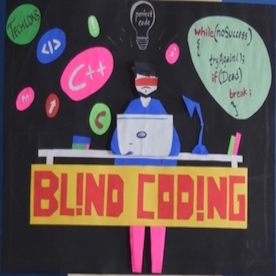 TECHLONS
perfect
code
</>
C++
C
while(noSuccess)
{
tryAgain();
if(Dead)
break;
}
BL!ND COD!NG